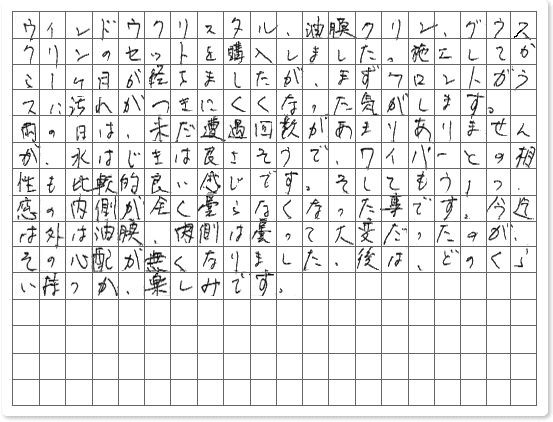 ウィンドウクリスタル、油膜クリン、グラス
クリンのセットを購入しました。施工してか
ら1ヶ月が経ちましたが、まずフロントガラ
スに汚れがつきにくくなった気がします。
雨の日は、未だ遭遇回数があまりありません
が、水はじきは良さそうで、ワイパーとの相
性も比較的良い感じです。そしてもう1つ、
感の内側が全く曇らなくなった事です。今迄
は外は油膜、内側は曇って大変だったのが、
その心配が無くなりました、後は、どのくら
い持つか、楽しみです。